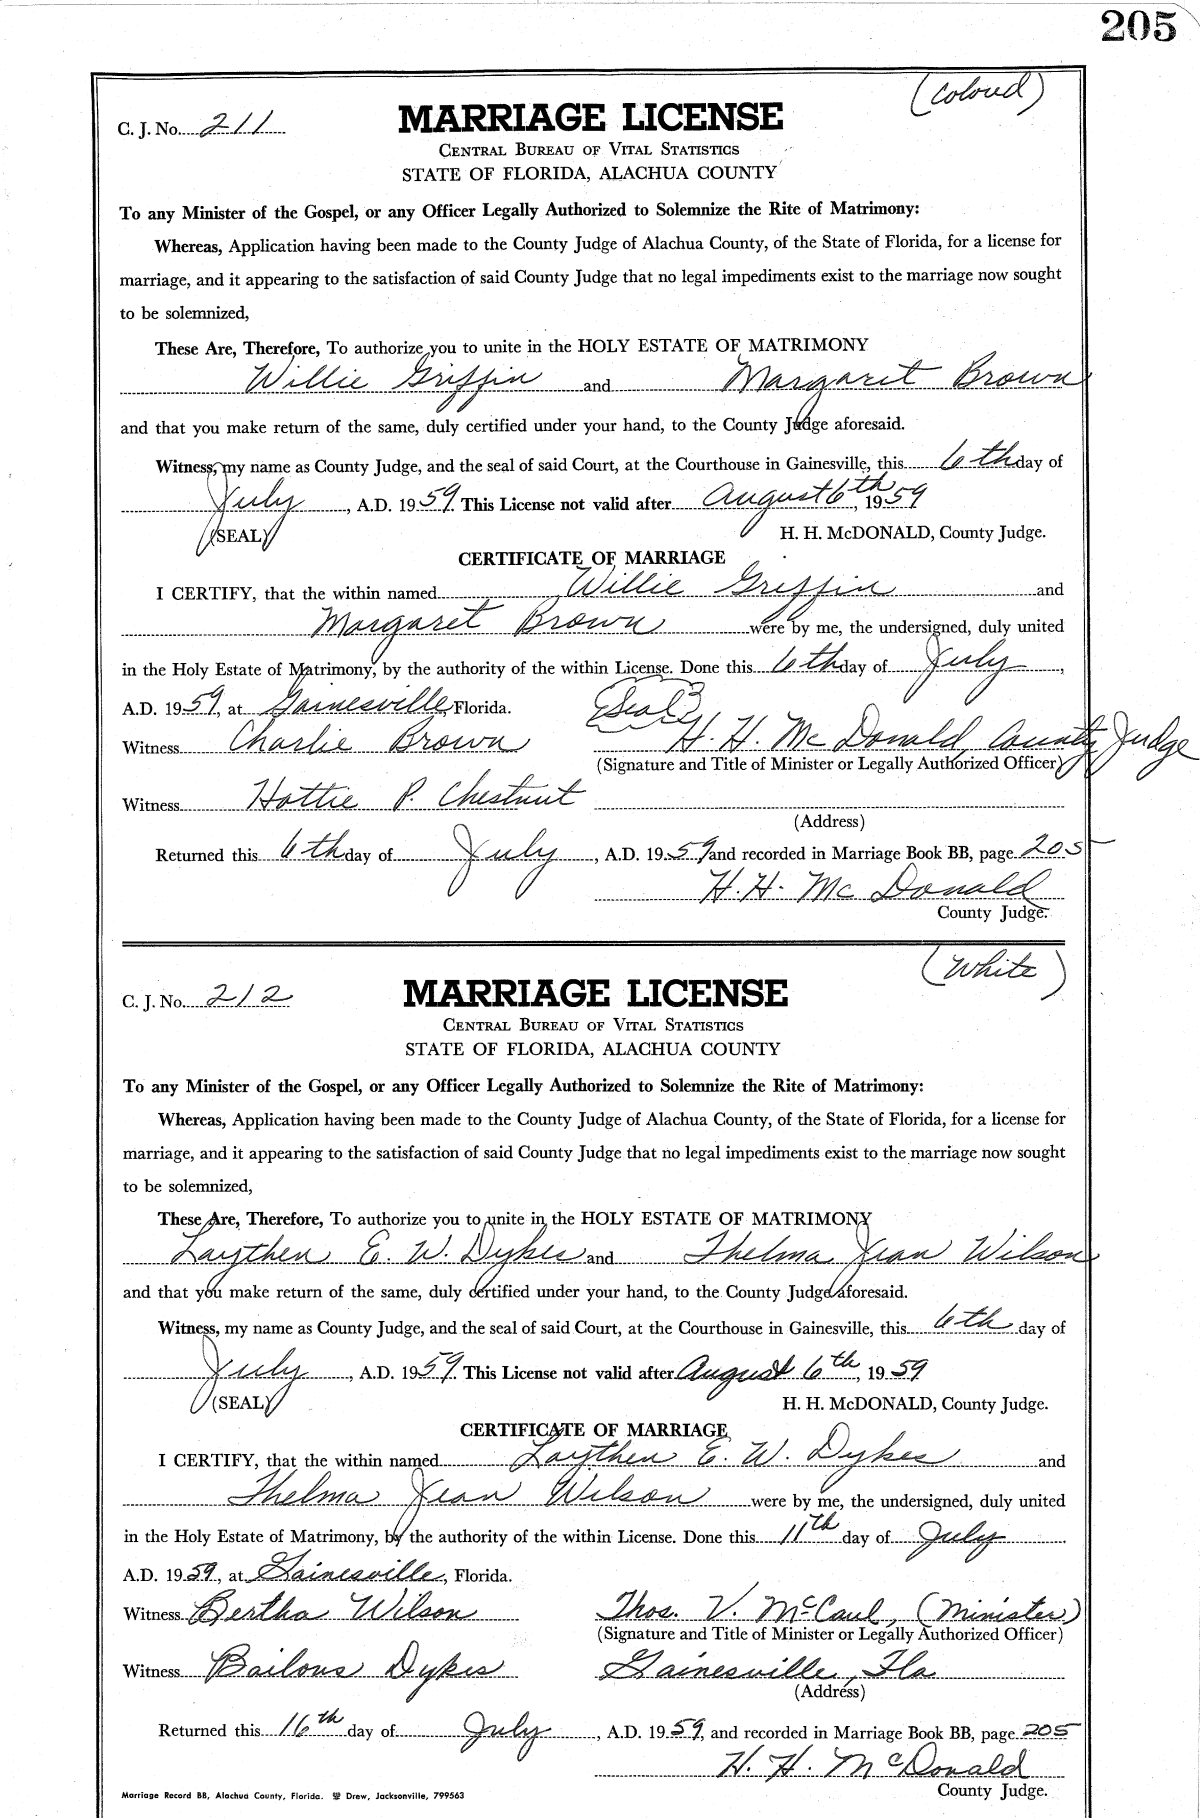 205
(Colored)
C. J. No. 211
MARRIAGE LICENSE
CENTRAL BUREAU OF VITAL STATISTICS
STATE OF FLORIDA, ALACHUA COUNTY
To any Minister of the Gospel, or any Officer Legally Authorized to Solemnize the Rite of Matrimony:
Whereas, Application having been made to the County Judge of Alachua County, of the State of Florida, for a license for
marriage, and it appearing to the satisfaction of said County Judge that no legal impediments exist to the marriage now sought
to be solemnized,
These Are, Therefore, To authorize you to unite in the HOLY ESTATE OF MATRIMONY
Willie Griffin and Margaret Brown
and that you make return of the same, duly certified under your hand, to the County Judge aforesaid.
Witness, my name as County Judge, and the seal of said Court, at the Courthouse in Gainesville, this 6th day of
July, A.D. 1959. This License not valid after August 6th, 1959
(SEAL) H. H. McDONALD, County Judge.
CERTIFICATE OF MARRIAGE
I CERTIFY, that the within named Willie Griffin and
Margaret Brown were by me, the undersigned, duly united
in the Holy Estate of Matrimony, by the authority of the within License. Done this 6th day of July,
A.D. 1959, at Gainesville, Florida. (Seal)
Witness Charlie Brown H. H. McDonald, County Judge
(Signature and Title of Minister or Legally Authorized Officer)
Witness Hattie P. Chestnut
(Address)
Returned this 6th day of July, A.D. 1959, and recorded in Marriage Book BB, page 205
H. H. McDonald
County Judge.
(White)
C. J. No. 212
MARRIAGE LICENSE
CENTRAL BUREAU OF VITAL STATISTICS
STATE OF FLORIDA, ALACHUA COUNTY
To any Minister of the Gospel, or any Officer Legally Authorized to Solemnize the Rite of Matrimony:
Whereas, Application having been made to the County Judge of Alachua County, of the State of Florida, for a license for
marriage, and it appearing to the satisfaction of said County Judge that no legal impediments exist to the marriage now sought
to be solemnized,
These Are, Therefore, To authorize you to unite in the HOLY ESTATE OF MATRIMONY
Laythen E. W. Dykes and Thelma Jean Wilson
and that you make return of the same, duly certified under your hand, to the County Judge aforesaid.
Witness, my name as County Judge, and the seal of said Court, at the Courthouse in Gainesville, this 6th day of
July, A.D. 1959. This License not valid after August 6th, 1959
(SEAL) H. H. McDONALD, County Judge.
CERTIFICATE OF MARRIAGE
I CERTIFY, that the within named Laythen E. W. Dykes and
Thelma Jean Wilson were by me, the undersigned, duly united
in the Holy Estate of Matrimony, by the authority of the within License. Done this 11th day of July
A.D. 1959, at Gainesville, Florida.
Witness Bertha Wilson Thos. V. McCaul, (Minister)
(Signature and Title of Minister or Legally Authorized Officer)
Witness Bailous Dykes Gainesville, Fla
(Address)
Returned this 16th day of July, A.D. 1959, and recorded in Marriage Book BB, page 205
H. H. McDonald
County Judge.
Marriage Record BB, Alachua County, Florida. Drew, Jacksonville, 799563